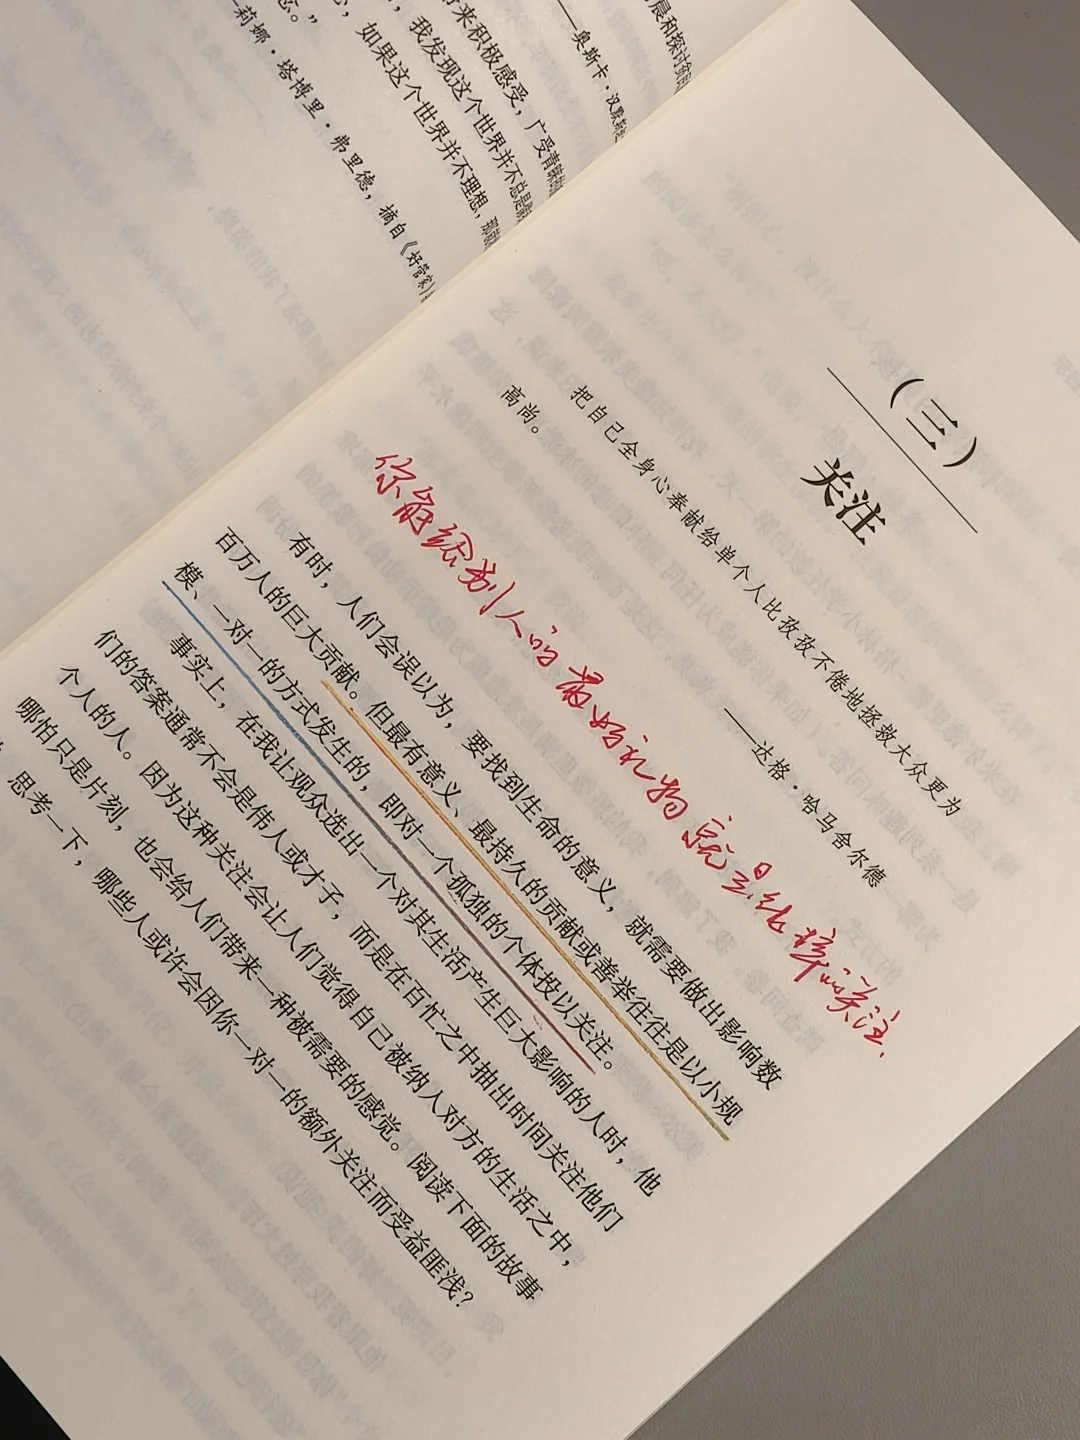 来积极感受，广受青睐的
，我发现这个世界并不总是
，如果这个世界并不理想，那
念。”
莉娜·塔博里·弗里德，摘自《好管家》
晨和探讨
——奥斯卡·汉默斯
（三）
关注
把自己全身心奉献给单个人比孜孜不倦地拯救大众更为
高尚。
——达格·哈马舍尔德
你能给别人的最好礼物就是纯粹的关注.
有时，人们会误以为，要找到生命的意义，就需要做出影响数
百万人的巨大贡献。但最有意义、最持久的贡献或善举往往是以小规
模、一对一的方式发生的，即对一个孤独的个体投以关注。
事实上，在我让观众选出一个对其生活产生巨大影响的人时，他
们的答案通常不会是伟人或才子，而是在百忙之中抽出时间关注他们
个人的人。因为这种关注会让人们觉得自己被纳入对方的生活之中，
哪怕只是片刻，也会给人们带来一种被需要的感觉。阅读下面的故事
思考一下，哪些人或许会因你一对一的额外关注而受益匪浅？